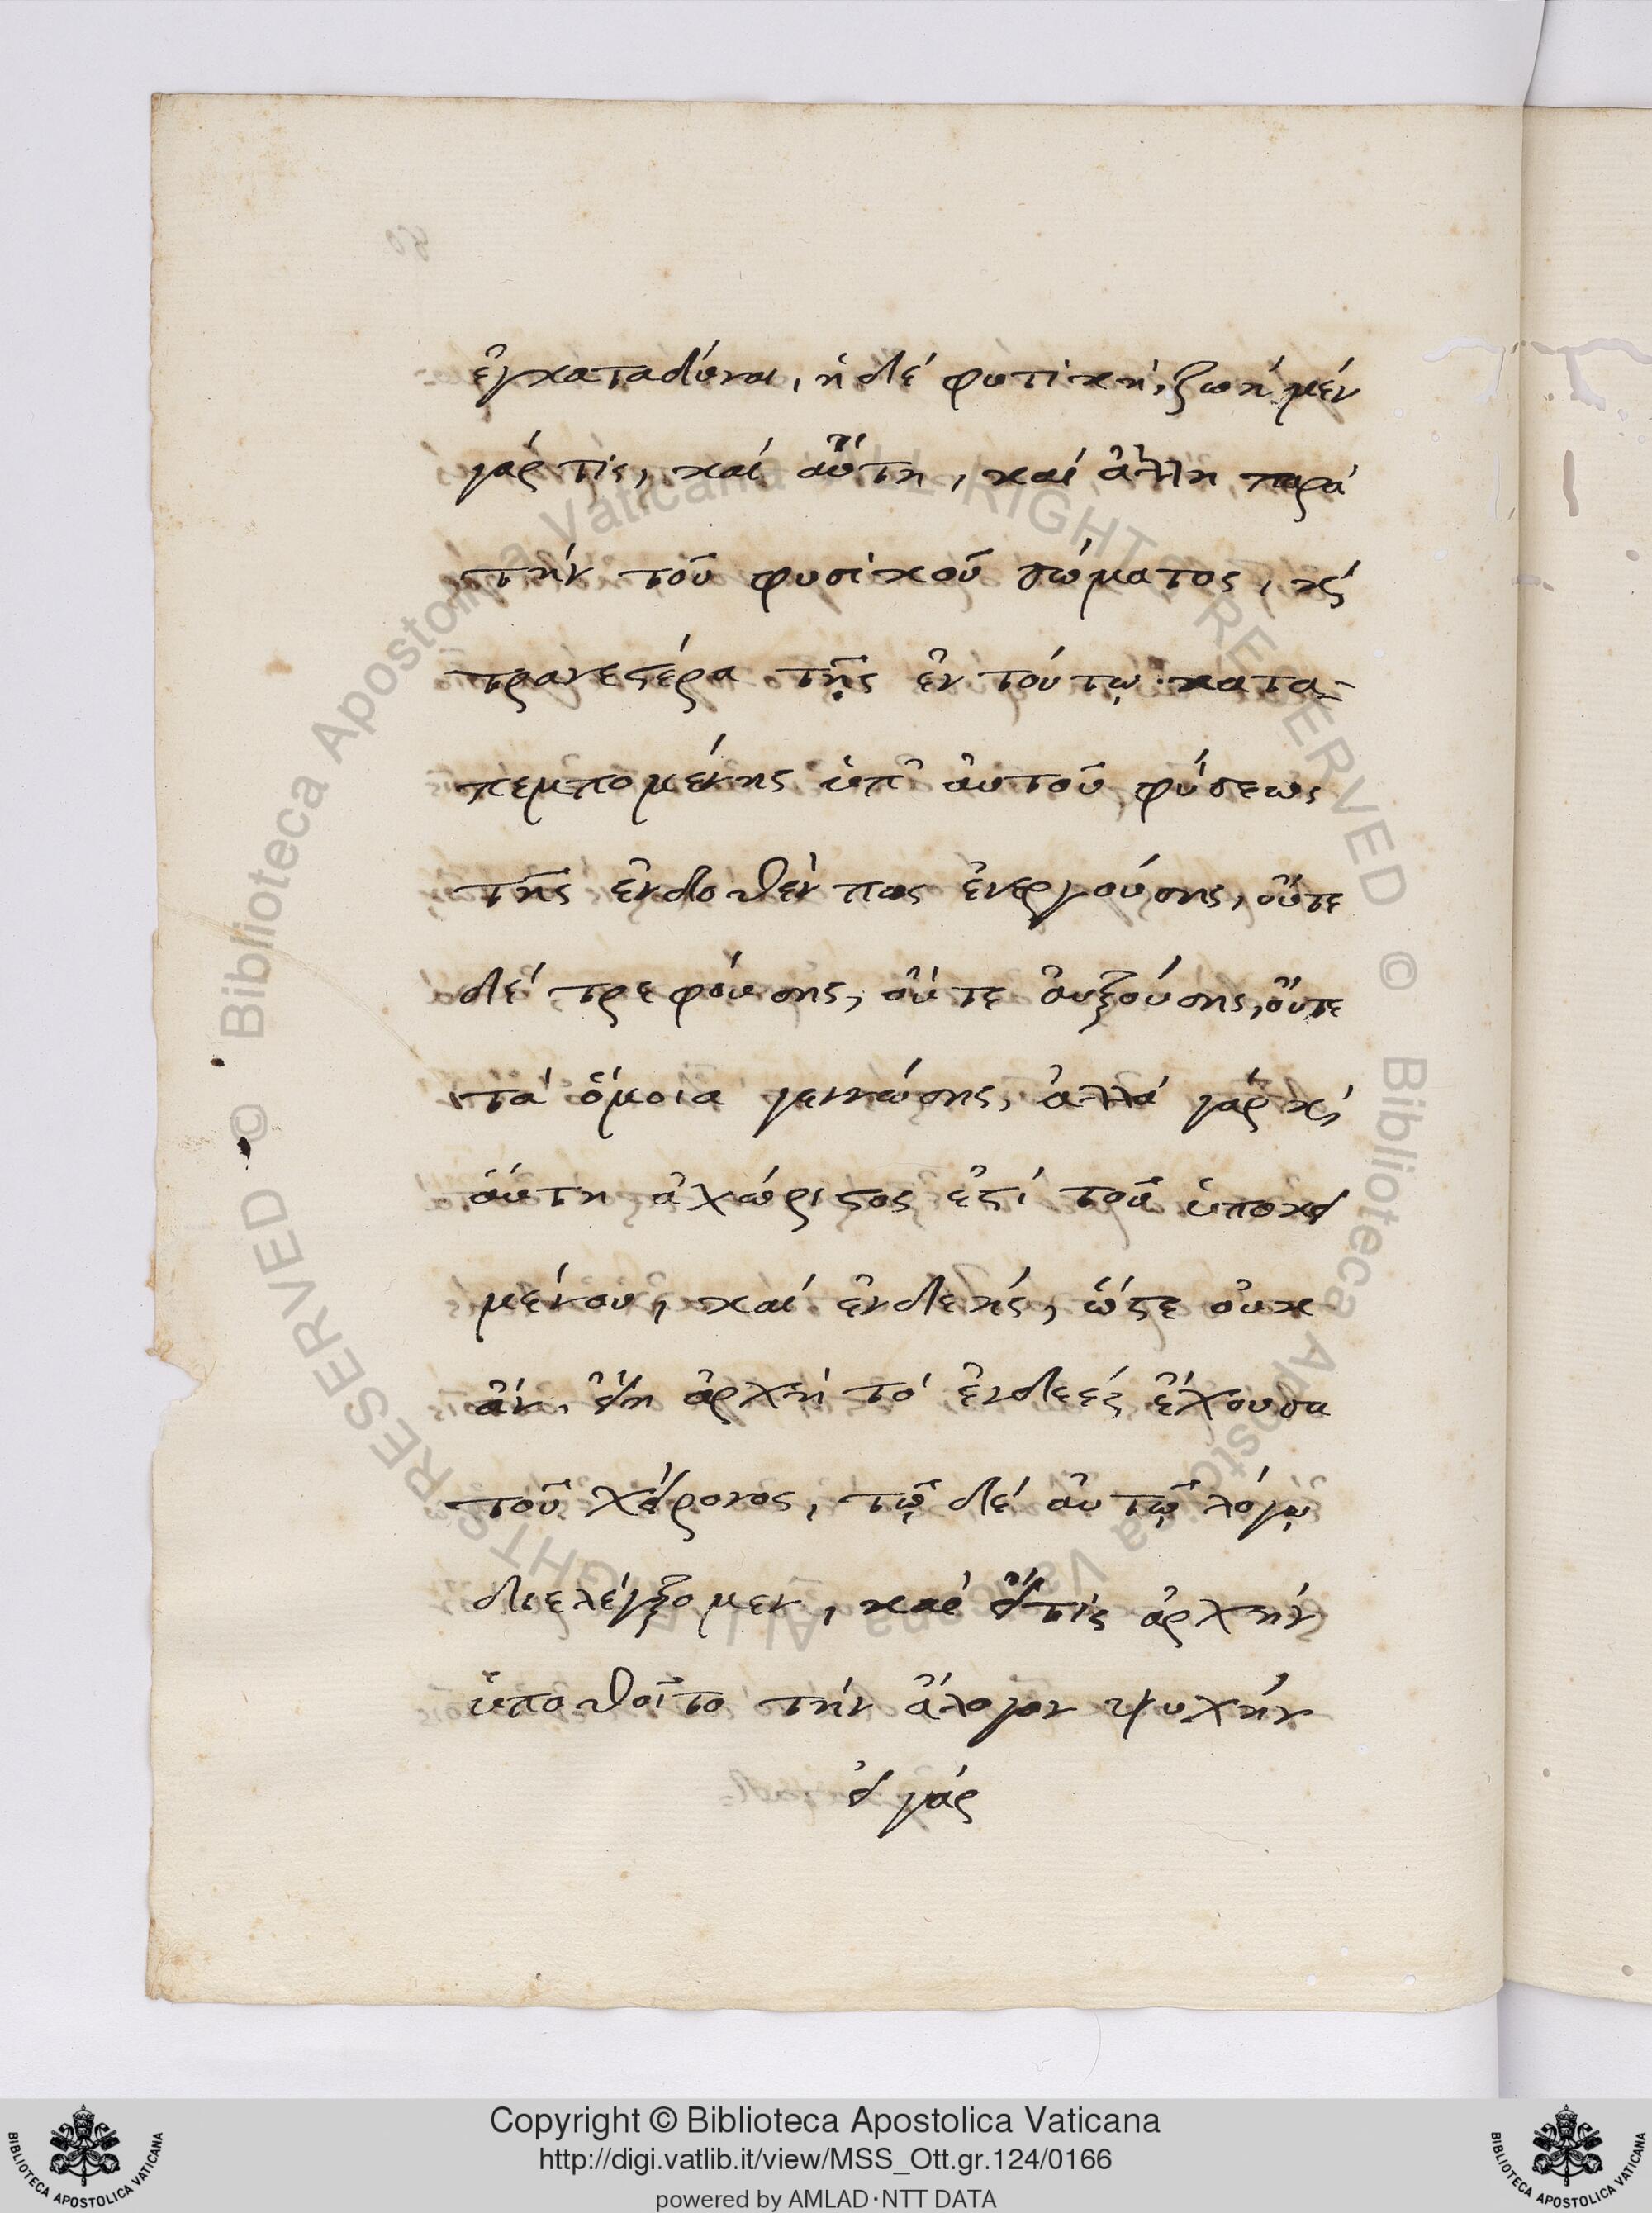 ἐγκαταδύναι, ἡ δέ φυτικὴ, ζωή μέν
γάρ τίς, καί αὕτη, καί ἄλλη παρά
τήν τοῦ φυσικοῦ σώματος, κ́
τρανεστέρα τῆς ἐν τούτῳ κατα-
πεμπομένης ὑπ' αὐτοῦ φύσεως
τῆς ἔνδοθέν πως ἐνεργούσης, οὔτε
δέ τρεφούσης, οὔτε αὐξούσης, οὔτε
τά ὅμοια γεννώσης, ἀλλά γάρ κ́
αὕτη ἀχώριστος ἐστί τοῦ ὑποκει
μένου, καί ἐνδεής, ὥστε οὐκ
ἄν, εἴη ἀρχή τό ἐνδεές ἔχουσα
τοῦ χείρονος, τῷ δέ αὐτῷ λόγῳ
διελέγξομεν, κἄν εἴ τις ἀρχήν
ὑποθοῖτο τήν ἄλογον ψυχήν
εἰ γάρ
50
© Biblioteca Apostolica Vaticana ALL RIGHTS RESERVED © Biblioteca Apostolica Vaticana ALL RIGHTS RESERVED
Copyright © Biblioteca Apostolica Vaticana
http://digi.vatlib.it/view/MSS_Ott.gr.124/0166
powered by AMLAD·NTT DATA
BIBLIOTECA APOSTOLICA VATICANA
BIBLIOTECA APOSTOLICA VATICANA